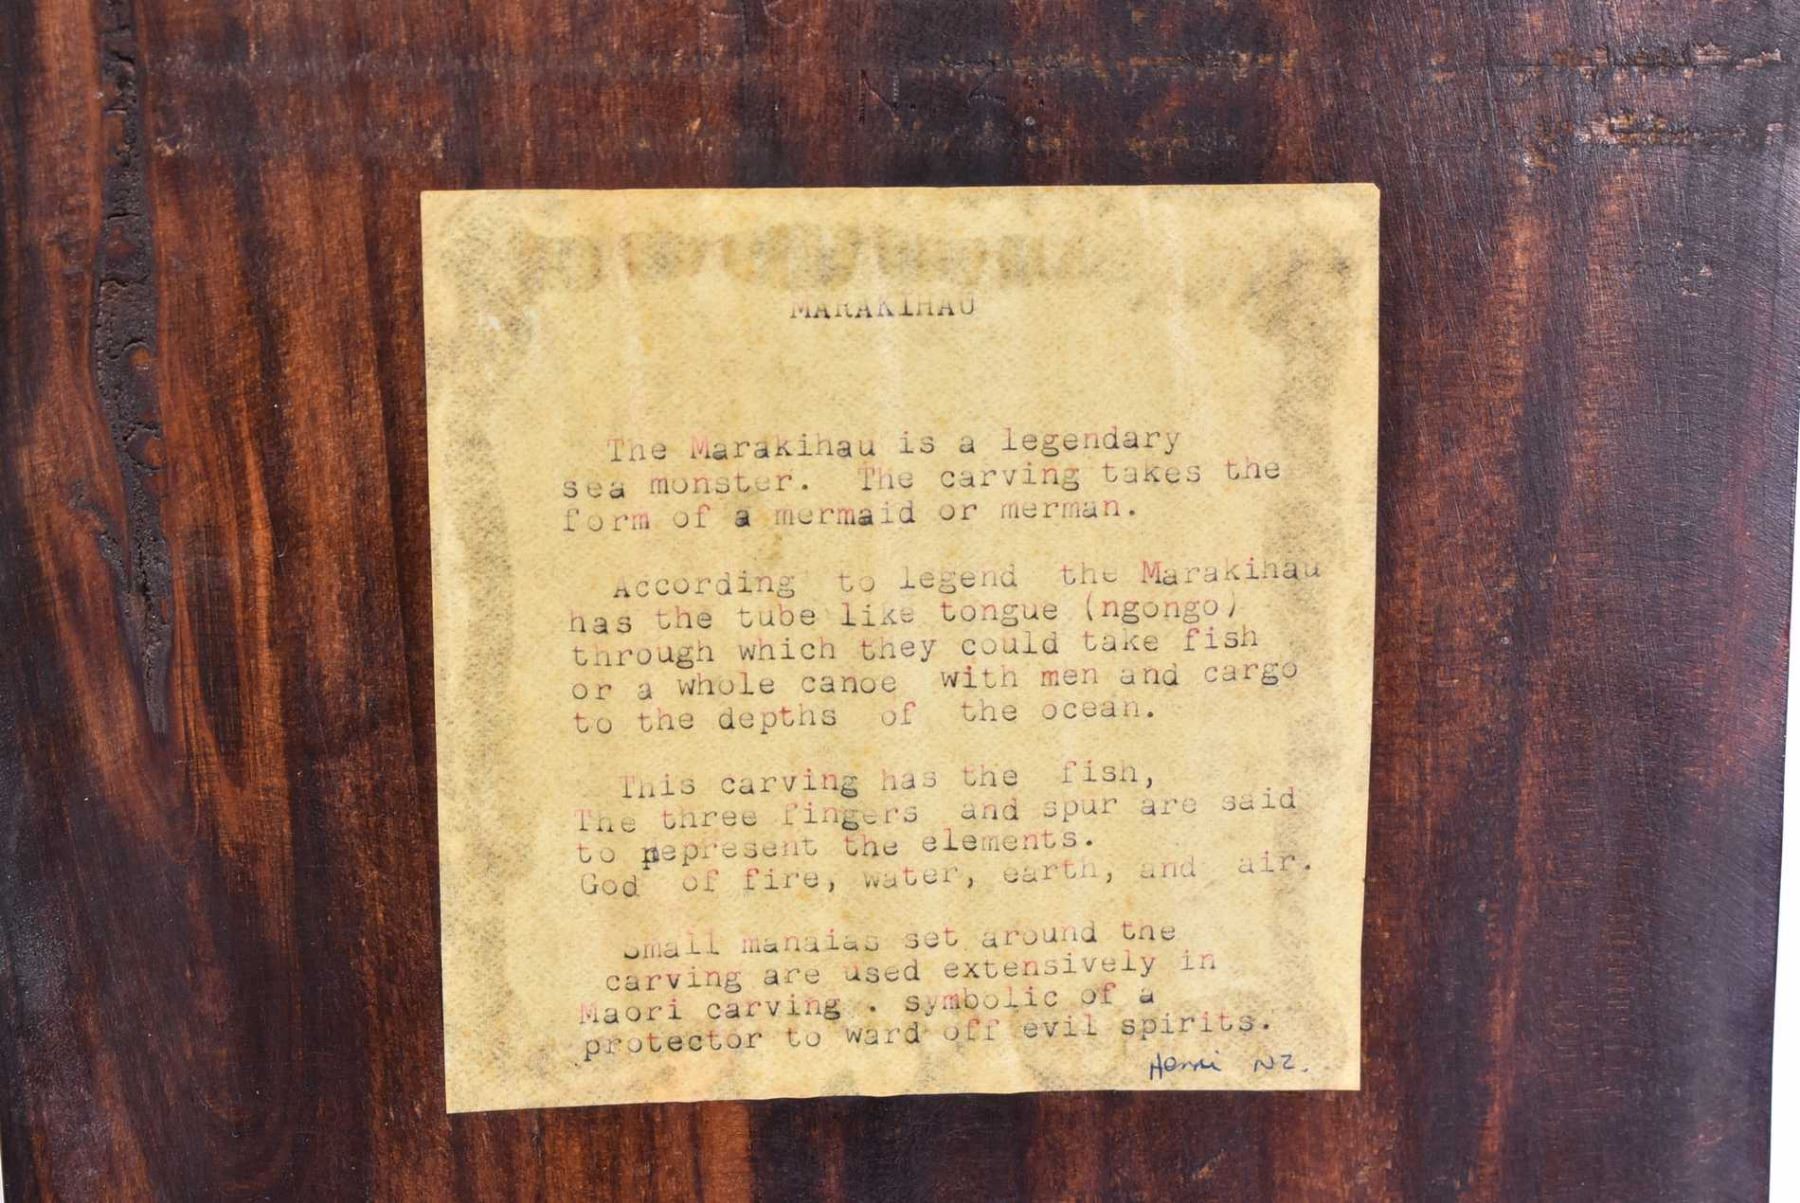 N.Z.
MARAKIHAU
The Marakihau is a legendary
sea monster. The carving takes the
form of a mermaid or merman.
According to legend the Marakihau
has the tube like tongue (ngongo)
through which they could take fish
or a whole canoe with men and cargo
to the depths of the ocean.
This carving has the fish,
The three fingers and spur are said
to pepresent the elements.
God of fire, water, earth, and air.
Small manaias set around the
carving are used extensively in
Maori carving . symbolic of a
protector to ward off evil spirits.
Henri NZ.